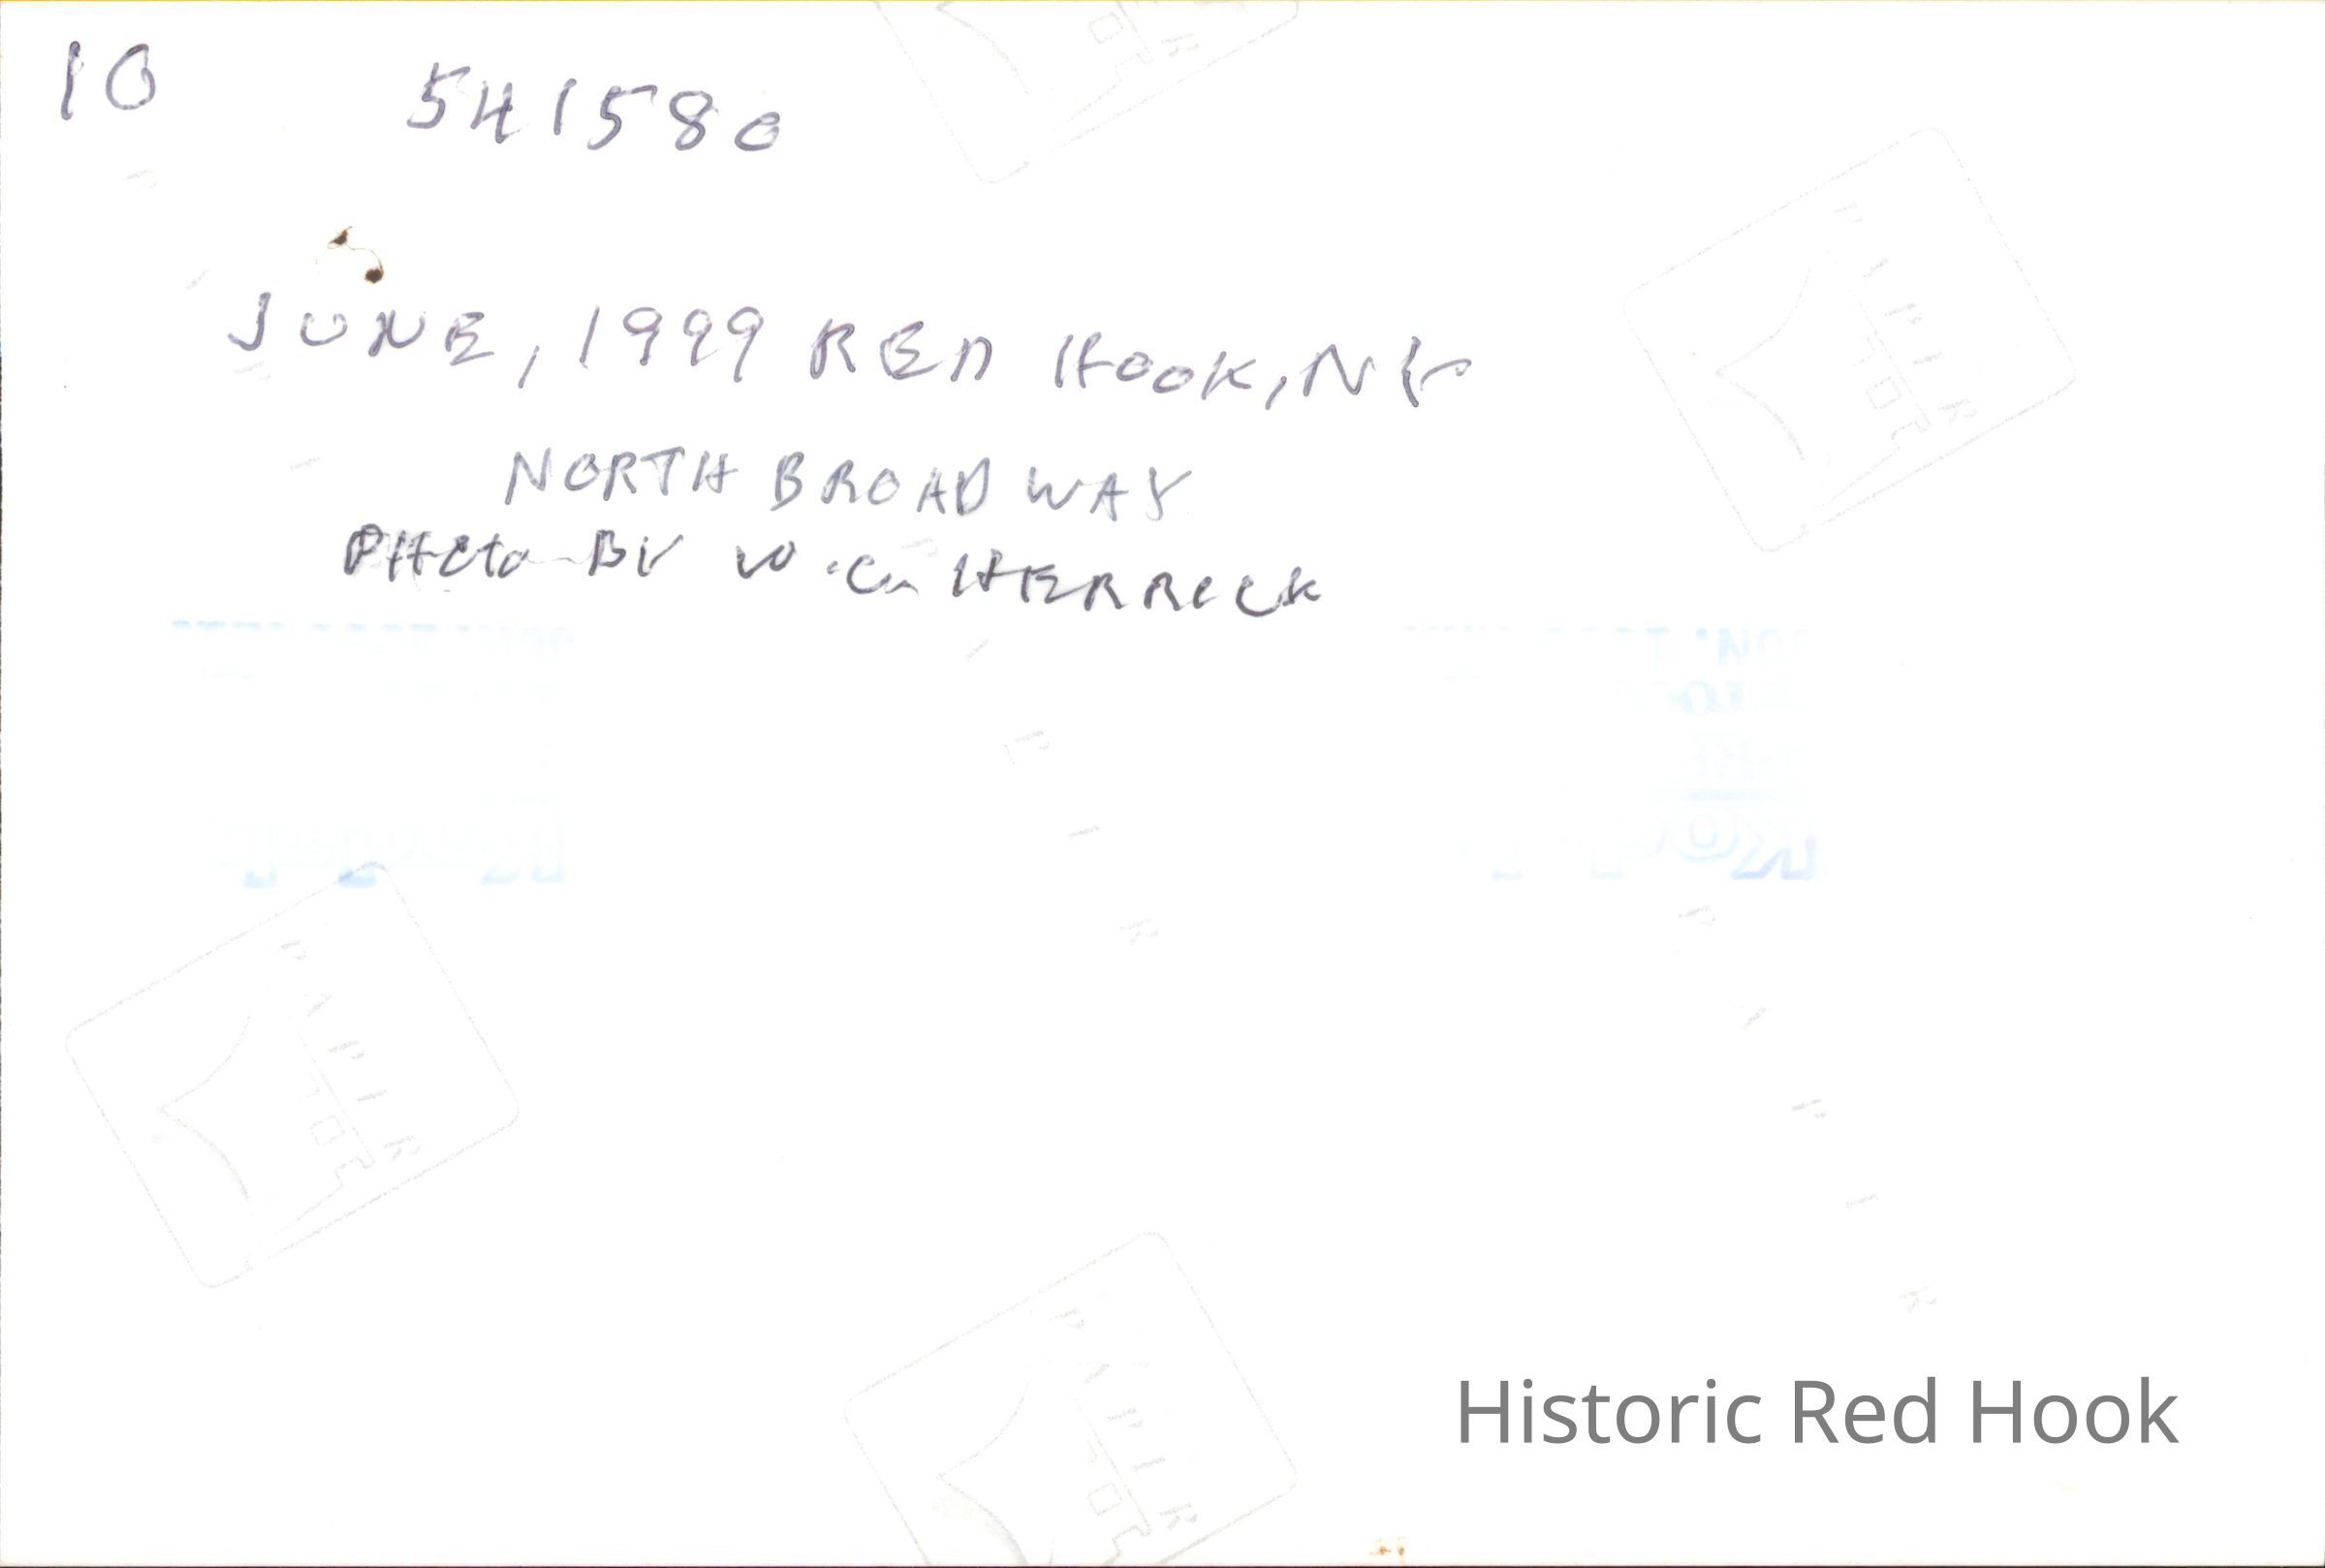 10 541580
JUNE, 1999 RED HOOK, NY
NORTH BROADWAY
PHOTO BY W.C. HERRICK
Historic Red Hook